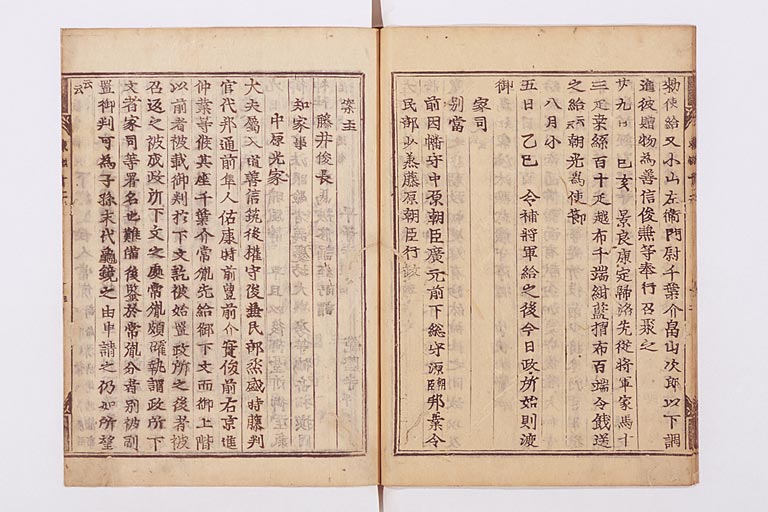 勅使給又小山左衛門尉千葉介畠山次郎以下調
進彼贈物為善信俊兼等奉行召聚之
廿九日 己亥 景良康定歸洛先從將軍家馬十
三疋桑絲百十疋越布千端紺藍摺布百端令餞送
之給云云朝光為使節
八月小
五日 乙巳 令補將軍給之後今日政所始則渡
御
家司
別當
前因幡守中原朝臣廣元前下総守源朝臣邦業令
民部少丞藤原朝臣行政
案主
藤井俊長
知家事
中原光家
大夫屬入道善信筑後權守俊兼民部丞盛時藤判
官代邦通前隼人佑康時前豊前介實俊前右京進
仲業等候其座千葉介常胤先給御下文而御上階
以前者被載御判於下文訖被始置政所之後者被
召返之被成政所下文之處常胤頗確執謂政所下
文者家司等署名也難備後鑒於常胤分者別被副
置御判可為子孫末代龜鏡之由申請之仍如所望
云云